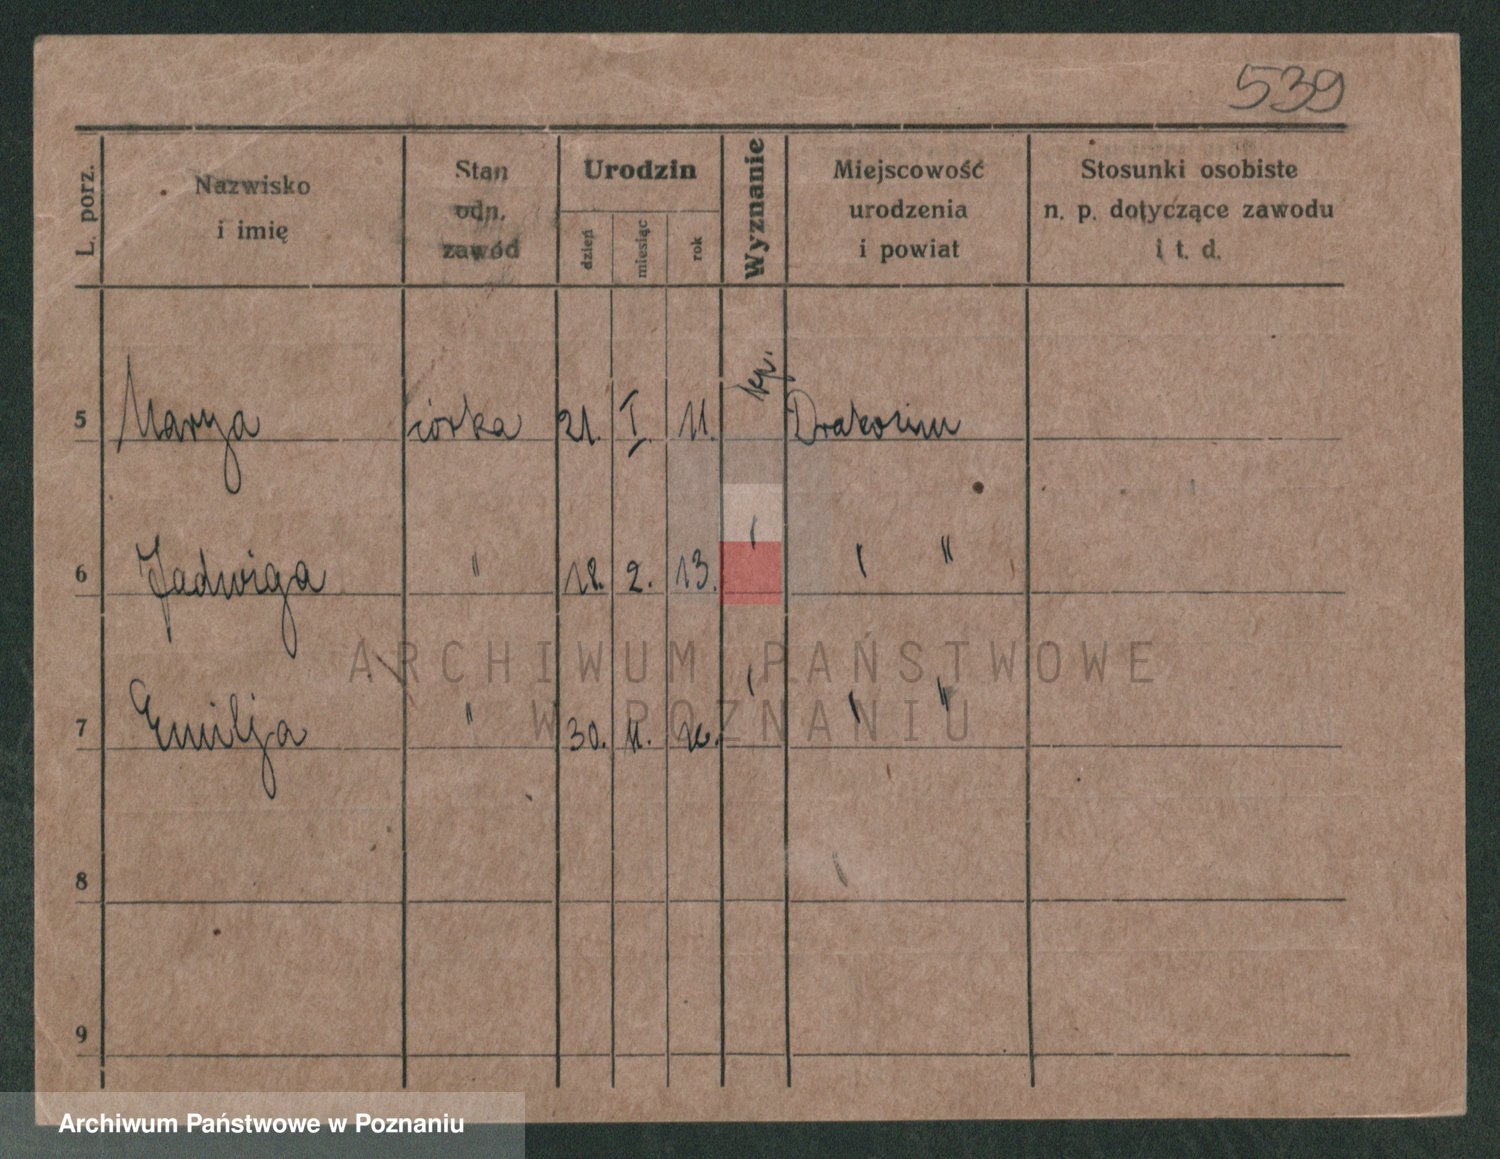 539
L. porz.
Nazwisko
i imię
Stan
odn.
zawód
Urodzin
dzień
miesiąc
rok
Wyznanie
Miejscowość
urodzenia
i powiat
Stosunki osobiste
n. p. dotyczące zawodu
i t. d.
5 Marya córka 21. I. 11. Drakozim
6 Jadwiga " 18. 2. 13. " "
7 Emilja " 30. 11. " "
8
9
ARCHIWUM PAŃSTWOWE
W POZNANIU
Archiwum Państwowe w Poznaniu